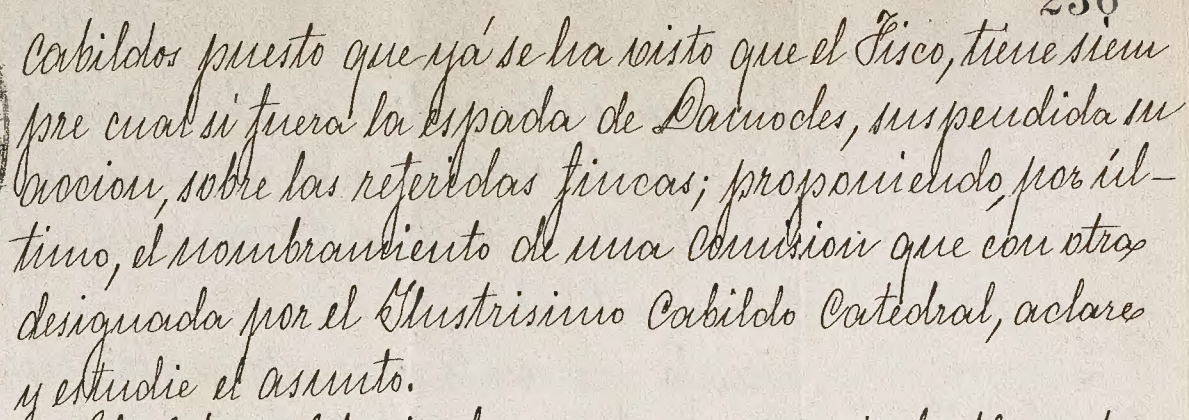 Cabildos puesto que yá se ha visto que el Fisco, tiene siem
pre cual si fuera la espada de Damocles, suspendida su
accion, sobre las referidas fincas; proponiendo, por úl-
timo, el nombramiento de una Comision que con otra
designada por el Ilustrisimo Cabildo Catedral, aclare
y estudie el asunto.